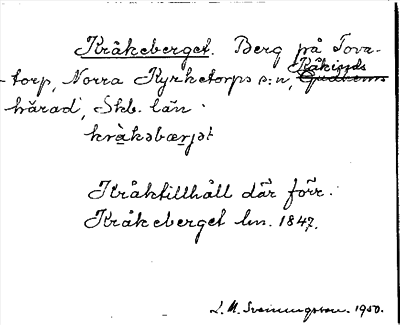 Kråkeberget. Berg på Tova-
torp, Norra Kyrketorps s:n, Kåkinds
härad, Skb. län.
kràksbærjet
Kråktillhåll där förr.
Kråkeberget lm. 1847.
L. M. Svenungsson. 1950.